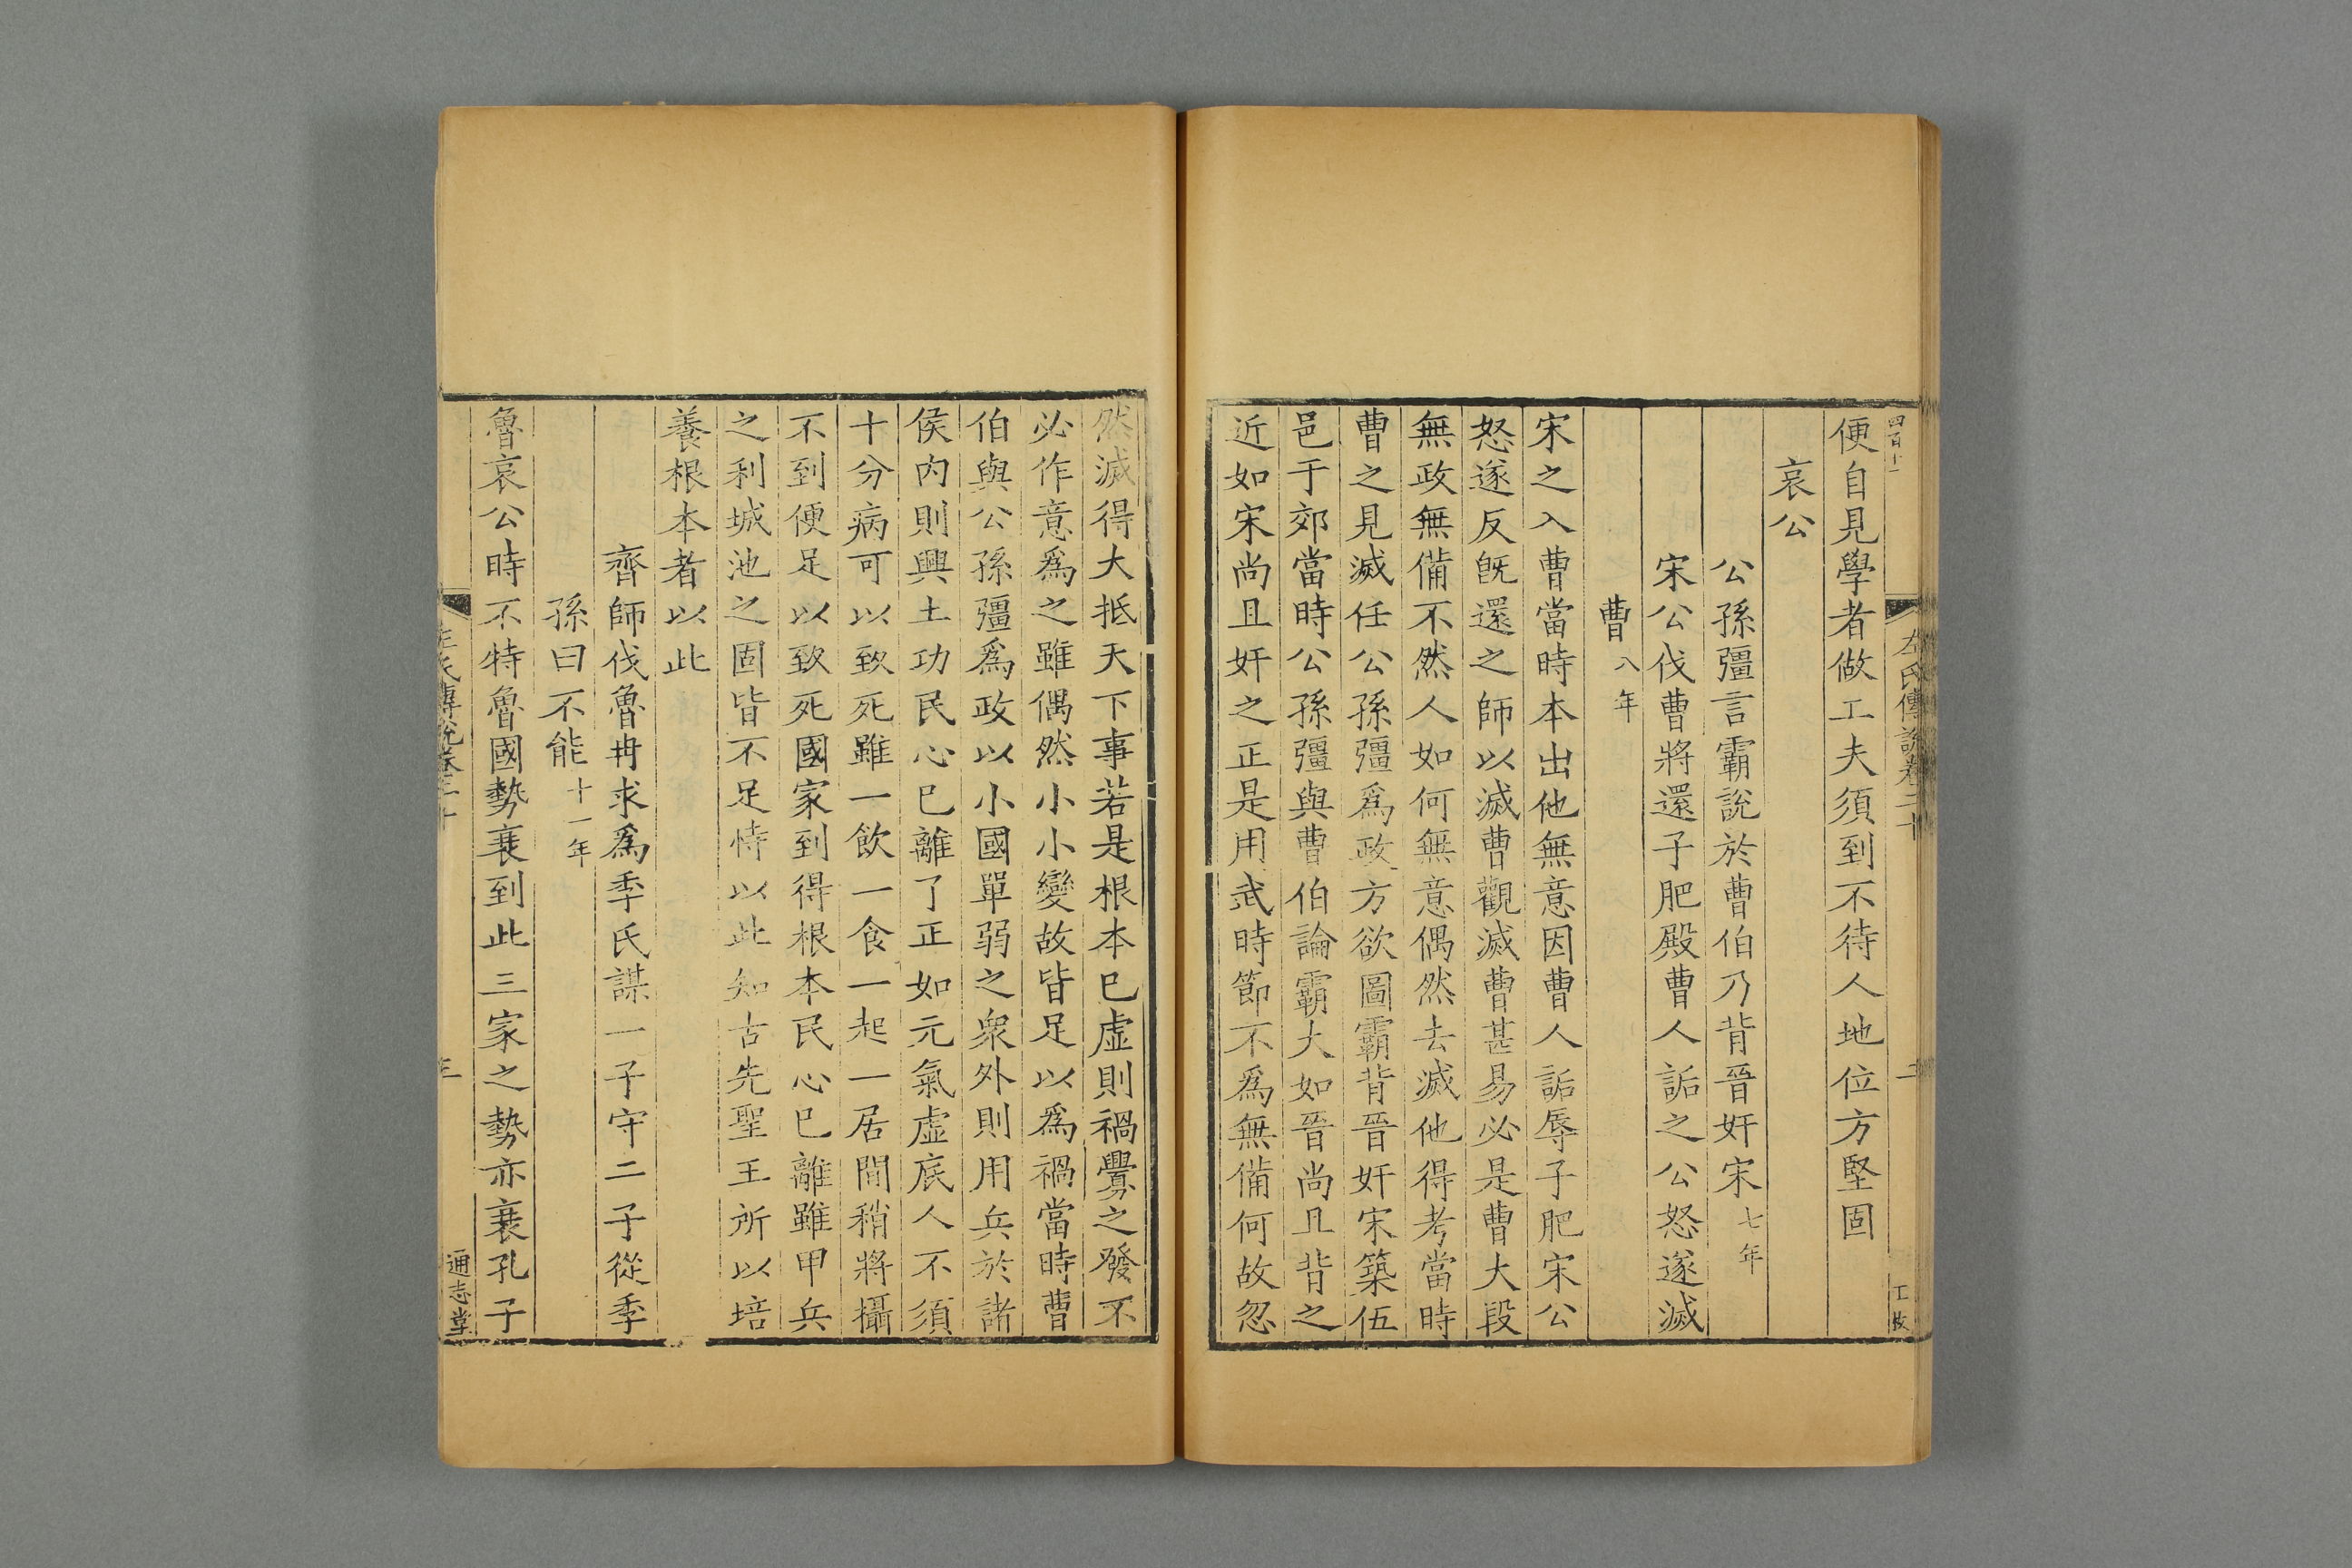 四百十一
左氏傳說卷二十
二
便自見學者做工夫須到不待人地位方堅固
哀公
公孫彊言霸說於曹伯乃背晉奸宋七年
宋公伐曹將還子肥殿曹人詬之公怒遂滅
曹八年
宋之入曹當時本出他無意因曹人詬辱子肥宋公
怒遂反旣還之師以滅曹觀滅曹甚易必是曹大段
無政無備不然人如何無意偶然去滅他得考當時
曹之見滅任公孫彊爲政方欲圖霸背晉奸宋築伍
邑于郊當時公孫彊與曹伯論霸大如晉尚且背之
近如宋尚且奸之正是用武時節不爲無備何故忽
然滅得大抵天下事若是根本已虛則禍釁之發不
必作意爲之雖偶然小小變故皆足以爲禍當時曹
伯與公孫彊爲政以小國單弱之衆外則用兵於諸
侯內則興土功民心已離了正如元氣虛底人不須
十分病可以致死雖一飲一食一起一居間稍將攝
不到便足以致死國家到得根本民心已離雖甲兵
之利城池之固皆不足恃以此知古先聖王所以培
養根本者以此
齊師伐魯冉求爲季氏謀一子守二子從季
孫曰不能十一年
魯哀公時不特魯國勢衰到此三家之勢亦衰孔子
左氏傳說卷二十
三
通志堂